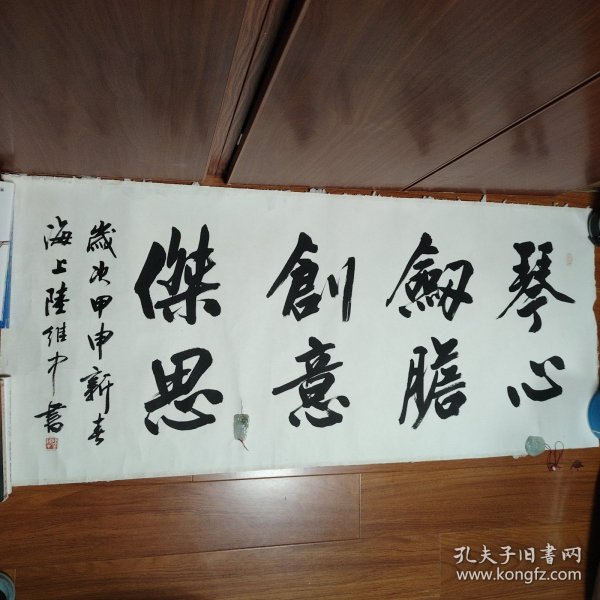 琴心
劍膽
創意
傑思
歲次甲申新春
海上陸維中書
孔夫子旧书网
www.kongfz.com